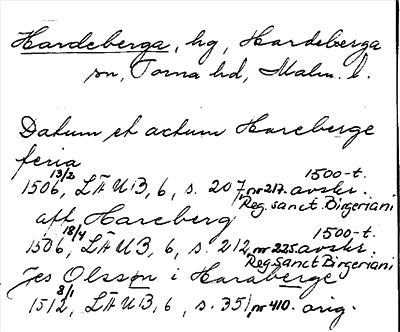 Hardeberga, hg, Hardeberga
sn, Torna hd, Malm. l.
Datum et actum Hareberge
feria
13/3 1500-t.
1506, LÄUB, 6, s. 207, nr 217. avskr.
Reg. sanct. Birgeriani
aff Hareberg
18/4 1500-t.
1506, LÄUB, 6, s. 212, nr 225. avskr.
Reg. Sanct Birgeriani
Jes Olsson i Haraberge
8/1
1512, LÄUB, 6, s. 351, nr 410. orig.